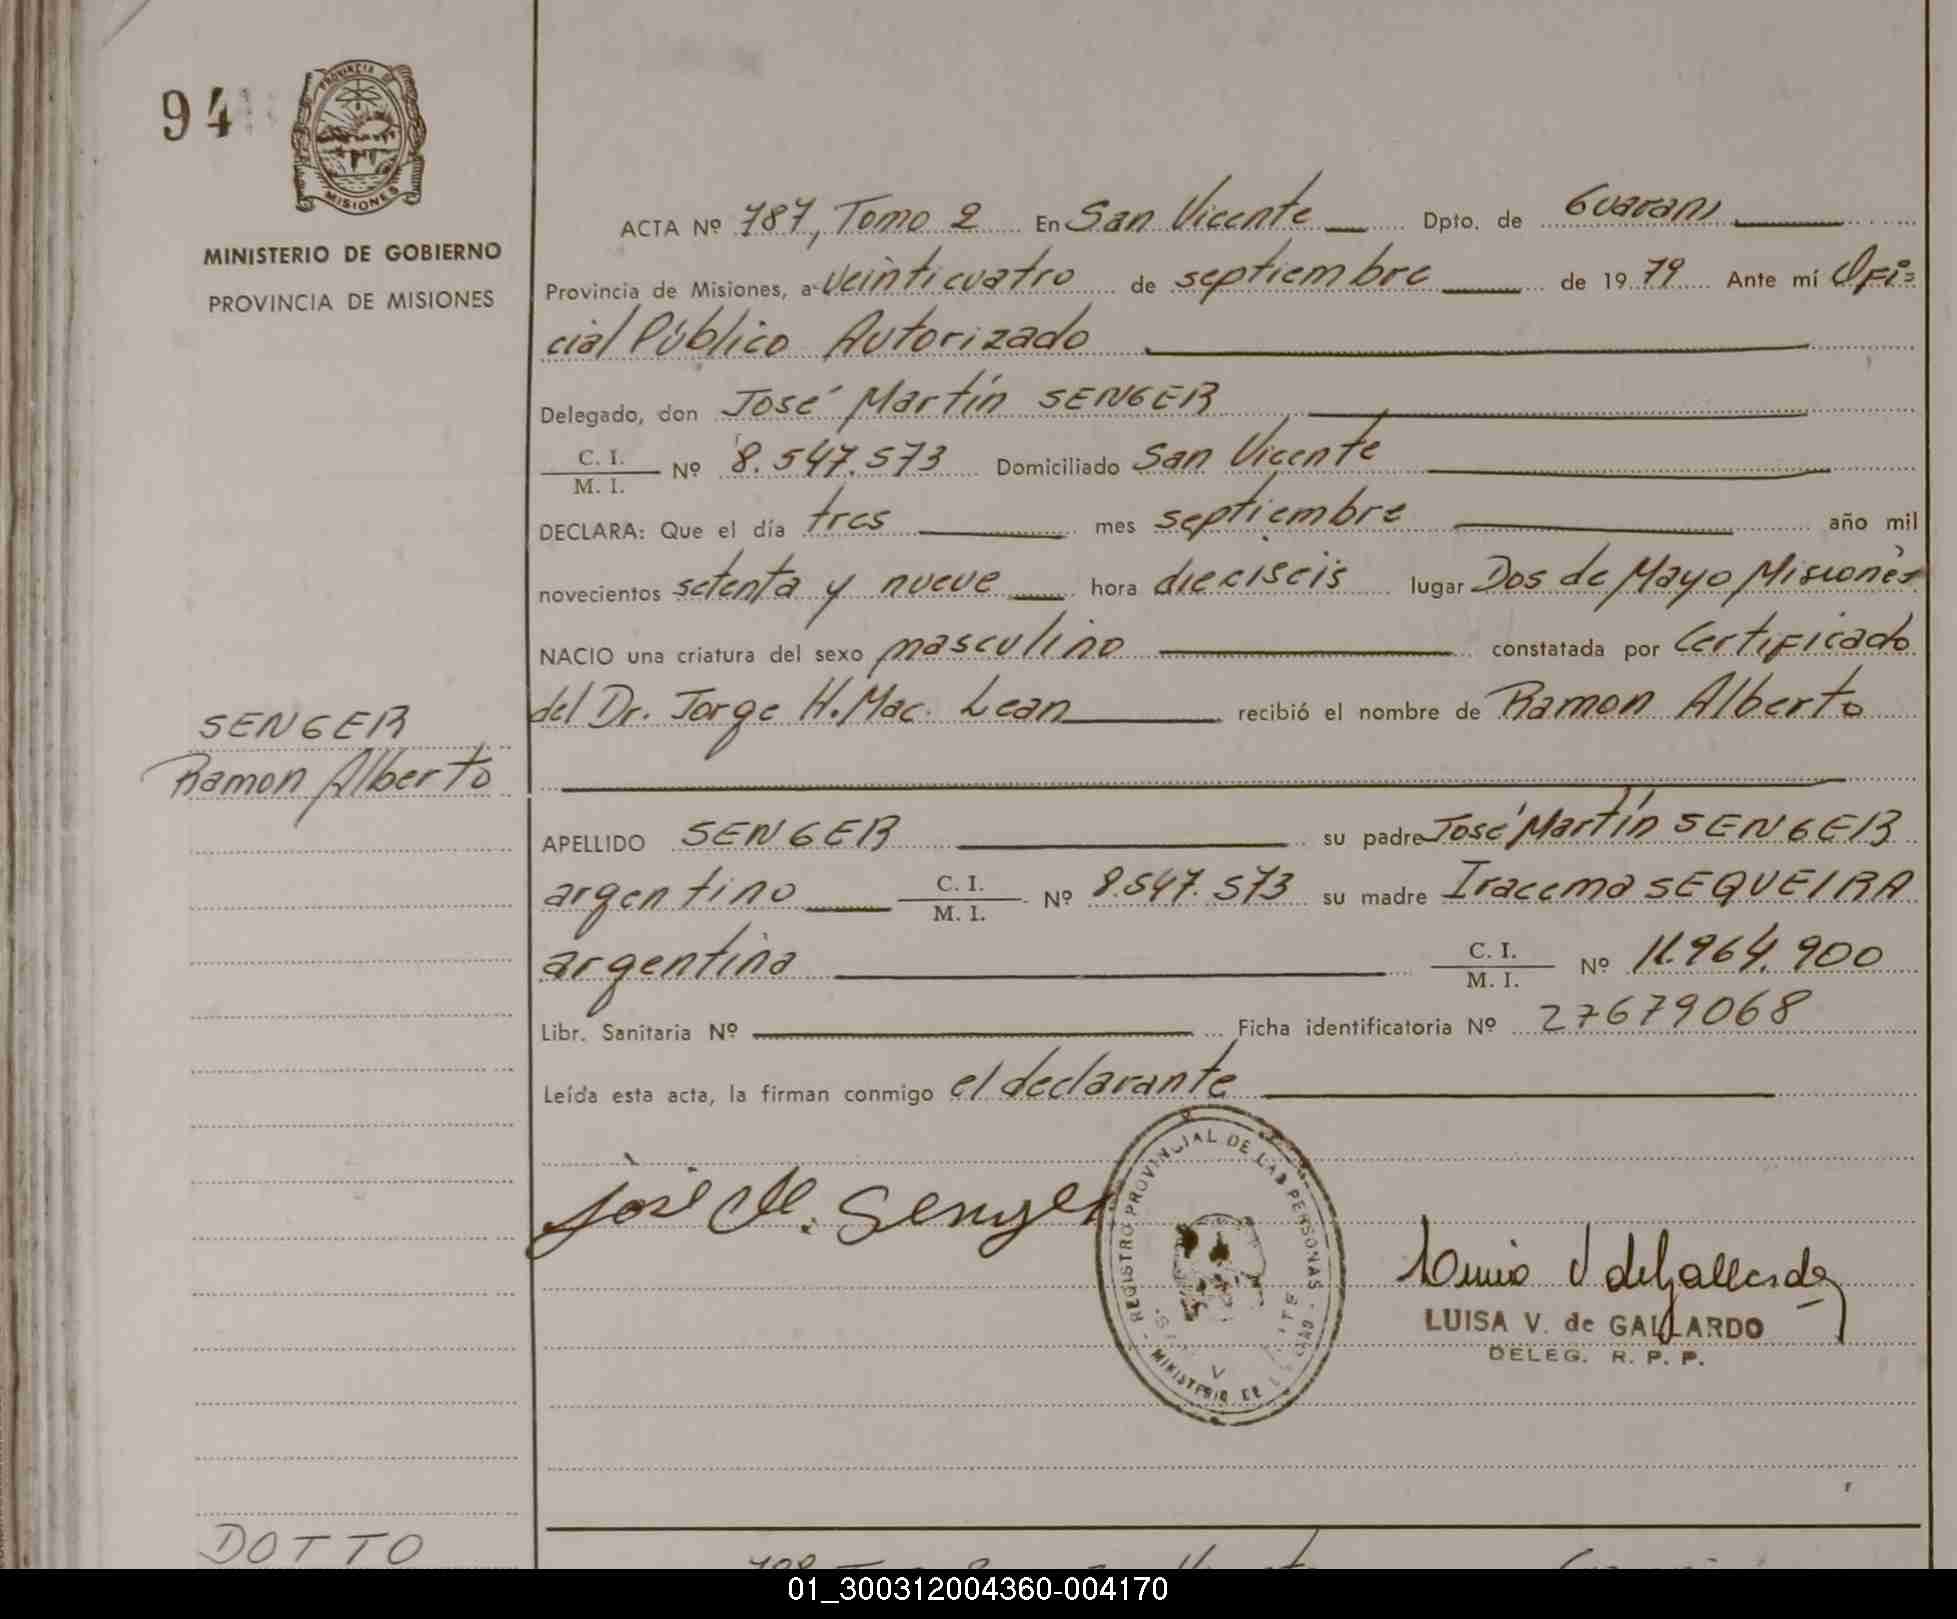 94
PROVINCIA DE
MISIONES
MINISTERIO DE GOBIERNO
PROVINCIA DE MISIONES
ACTA Nº 787, Tomo 2 En San Vicente Dpto. de Guarani
Provincia de Misiones, a veinticuatro de septiembre de 1979 Ante mí Ofi=
cial Público Autorizado
Delegado, don José Martín SENGER
C. I.
M. I. Nº 8.547.573 Domiciliado San Vicente
DECLARA: Que el día tres mes septiembre año mil
novecientos setenta y nueve hora dieciseis lugar Dos de Mayo Misiones
NACIO una criatura del sexo masculino constatada por Certificado
del Dr. Jorge H. Mac. Lean recibió el nombre de Ramon Alberto
SENGER
Ramon Alberto
APELLIDO SENGER su padre José Martín SENGER
argentino C. I.
M. I. Nº 8.547.573 su madre Iracema SEQUEIRA
argentina C. I.
M. I. Nº 11.964.900
Libr. Sanitaria Nº Ficha identificatoria Nº 27679068
Leída esta acta, la firman conmigo el declarante
José M. Senger
REGISTRO PROVINCIAL DE LAS PERSONAS
MINISTERIO DE
LUISA V. de GALLARDO
DELEG. R. P. P.
DOTTO
01_300312004360-004170